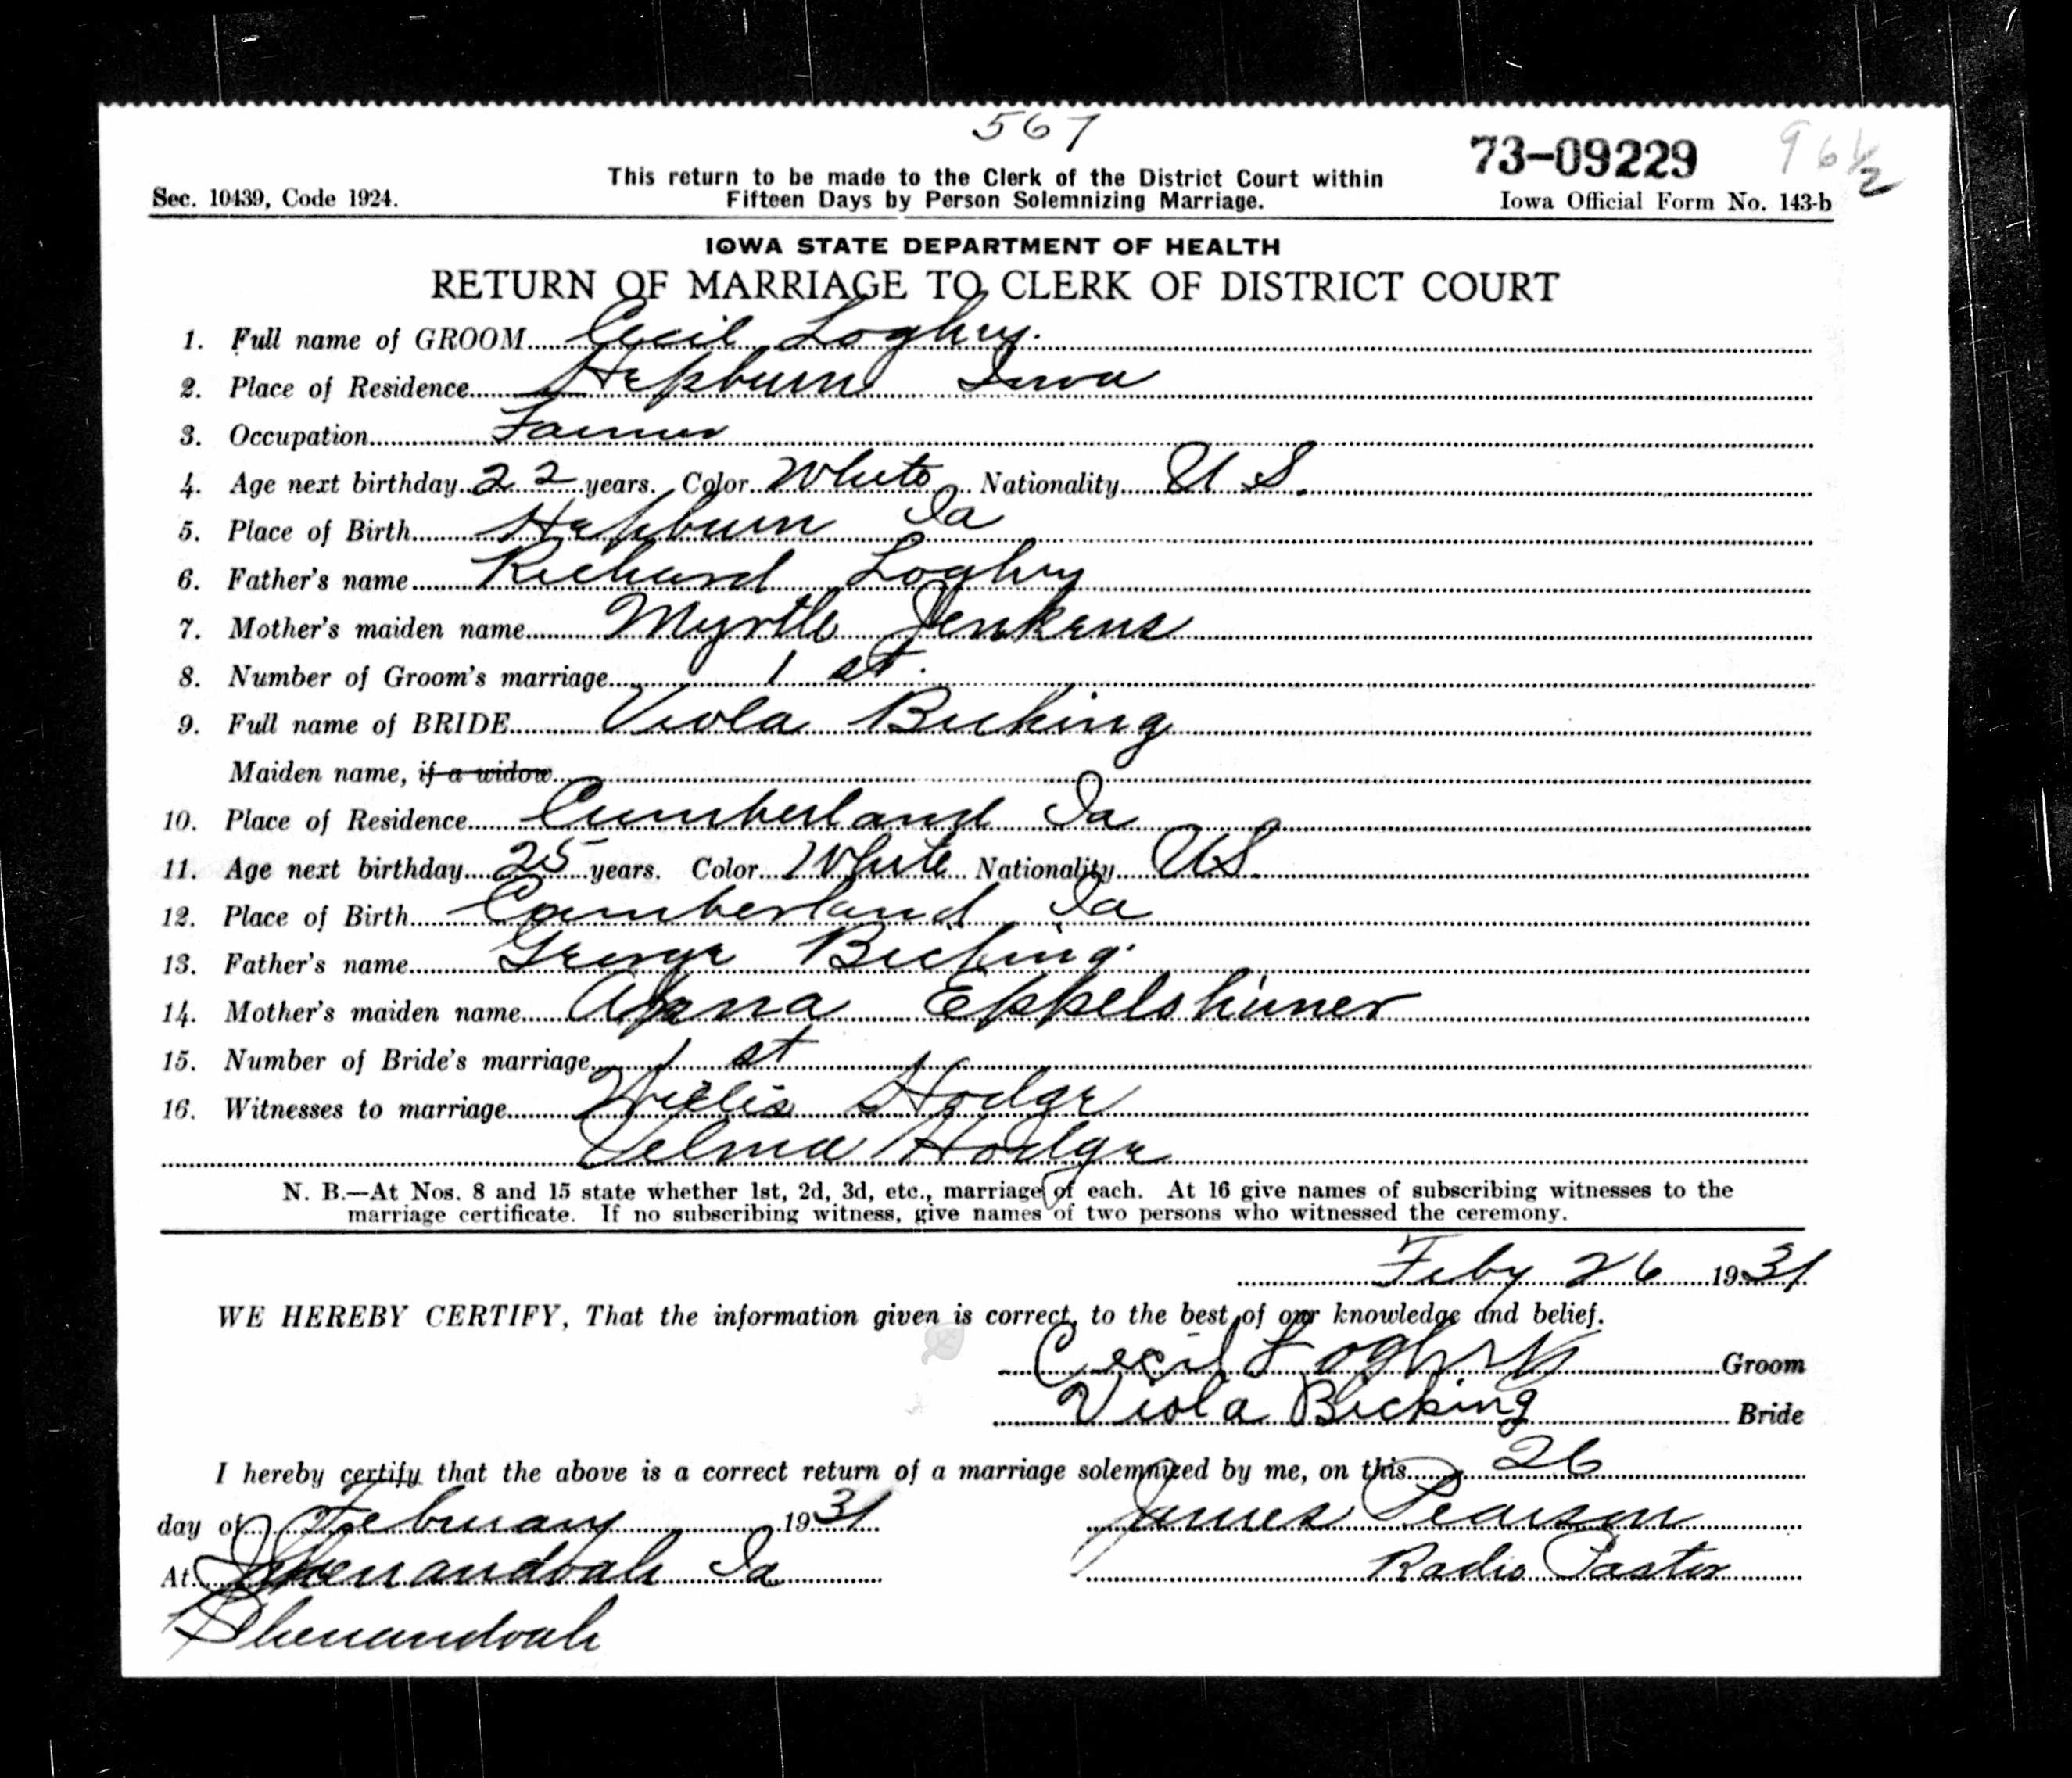 567
73-09229 96 1/2
This return to be made to the Clerk of the District Court within
Sec. 10439, Code 1924. Fifteen Days by Person Solemnizing Marriage. Iowa Official Form No. 143-b
IOWA STATE DEPARTMENT OF HEALTH
RETURN OF MARRIAGE TO CLERK OF DISTRICT COURT
1. Full name of GROOM Cecil Loghry.
2. Place of Residence Hepburn Iowa
3. Occupation Farmer
4. Age next birthday 22 years. Color White Nationality U S.
5. Place of Birth Hepburn Ia
6. Father's name Richard Loghry
7. Mother's maiden name Myrtle Jenkens
8. Number of Groom's marriage 1 st.
9. Full name of BRIDE Viola Bicking
Maiden name, if a widow
10. Place of Residence Cumberland Ia
11. Age next birthday 25 years. Color White Nationality US.
12. Place of Birth Cumberland Ia
13. Father's name George Bicking.
14. Mother's maiden name Anna Eppelshimer
15. Number of Bride's marriage 1 st
16. Witnesses to marriage Willis Hodge
Velma Hodge
N. B.—At Nos. 8 and 15 state whether 1st, 2d, 3d, etc., marriage of each. At 16 give names of subscribing witnesses to the
marriage certificate. If no subscribing witness, give names of two persons who witnessed the ceremony.
Feby 26 1931
WE HEREBY CERTIFY, That the information given is correct, to the best of our knowledge and belief.
Cecil Loghry Groom
Viola Bicking Bride
I hereby certify that the above is a correct return of a marriage solemnized by me, on this 26
day of February 1931 James Pearson
At Shenandoah Ia Radio Pastor
Shenandoah